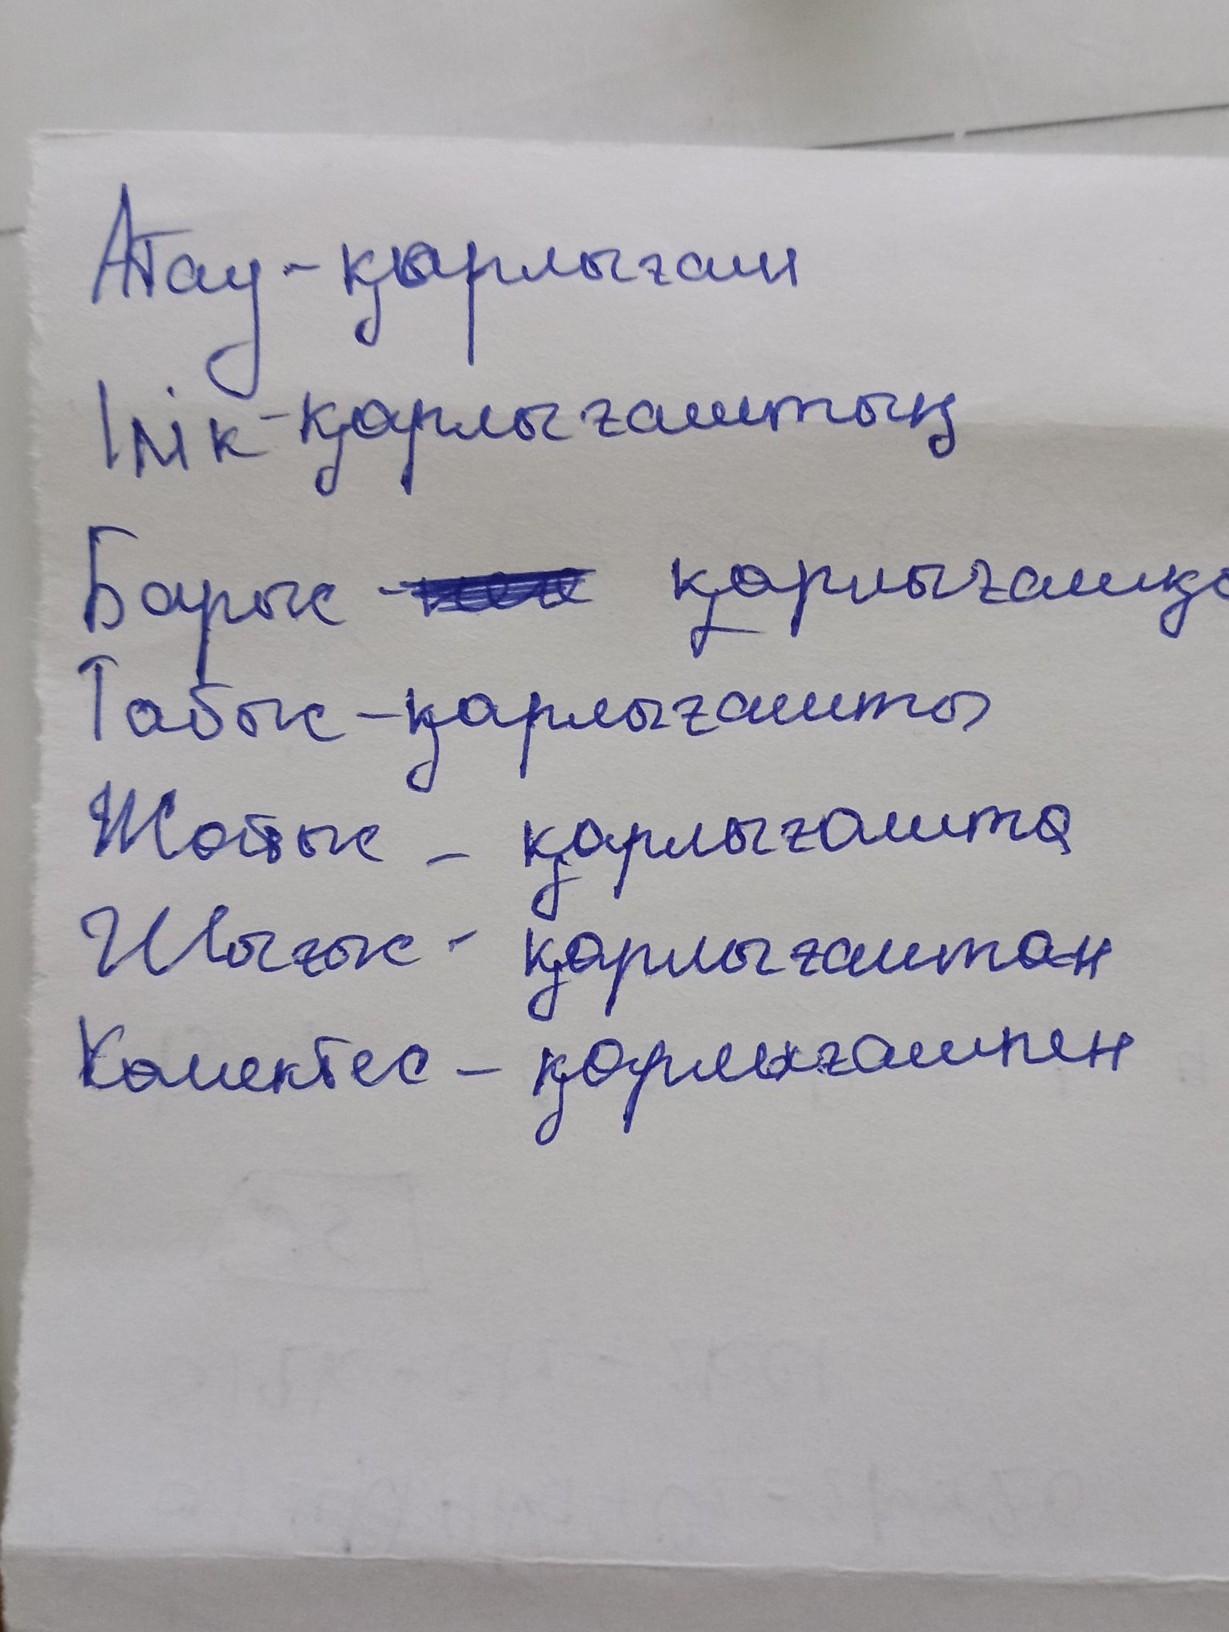 Атау - қарлығаш
Ілік - қарлығаштың
Барыс - қарлығашқа
Табыс - қарлығашты
Жатыс - қарлығашта
Шығыс - қарлығаштан
Көмектес - қарлығашпен